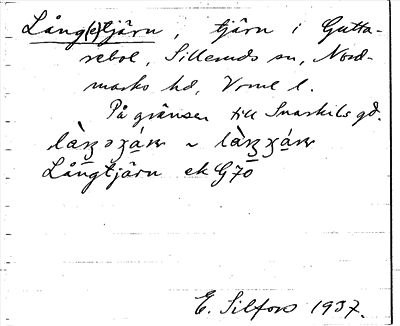 Lång(e)tjärn, tjärn i Gutta-
rebol, Silleruds sn, Nord-
marks hd, Vrml l.
På gränsen till Snarkils gd.
Långtjärn ek G70
E. Silfors 1937.